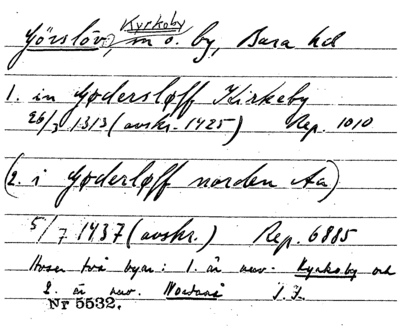 Kyrkoby
Görslöv, sn o. by, Bara hd
1. in Gødersløff Kirkeby
26/3 1313 (avskr. 1425) Rep. 1010
(2. i Gøderløff norden Aa)
5/7 1437 (avskr.) Rep. 6885
två byar: 1. är nuv. Kyrkoby och
2. är nuv. Nordanå
Nr 5532.